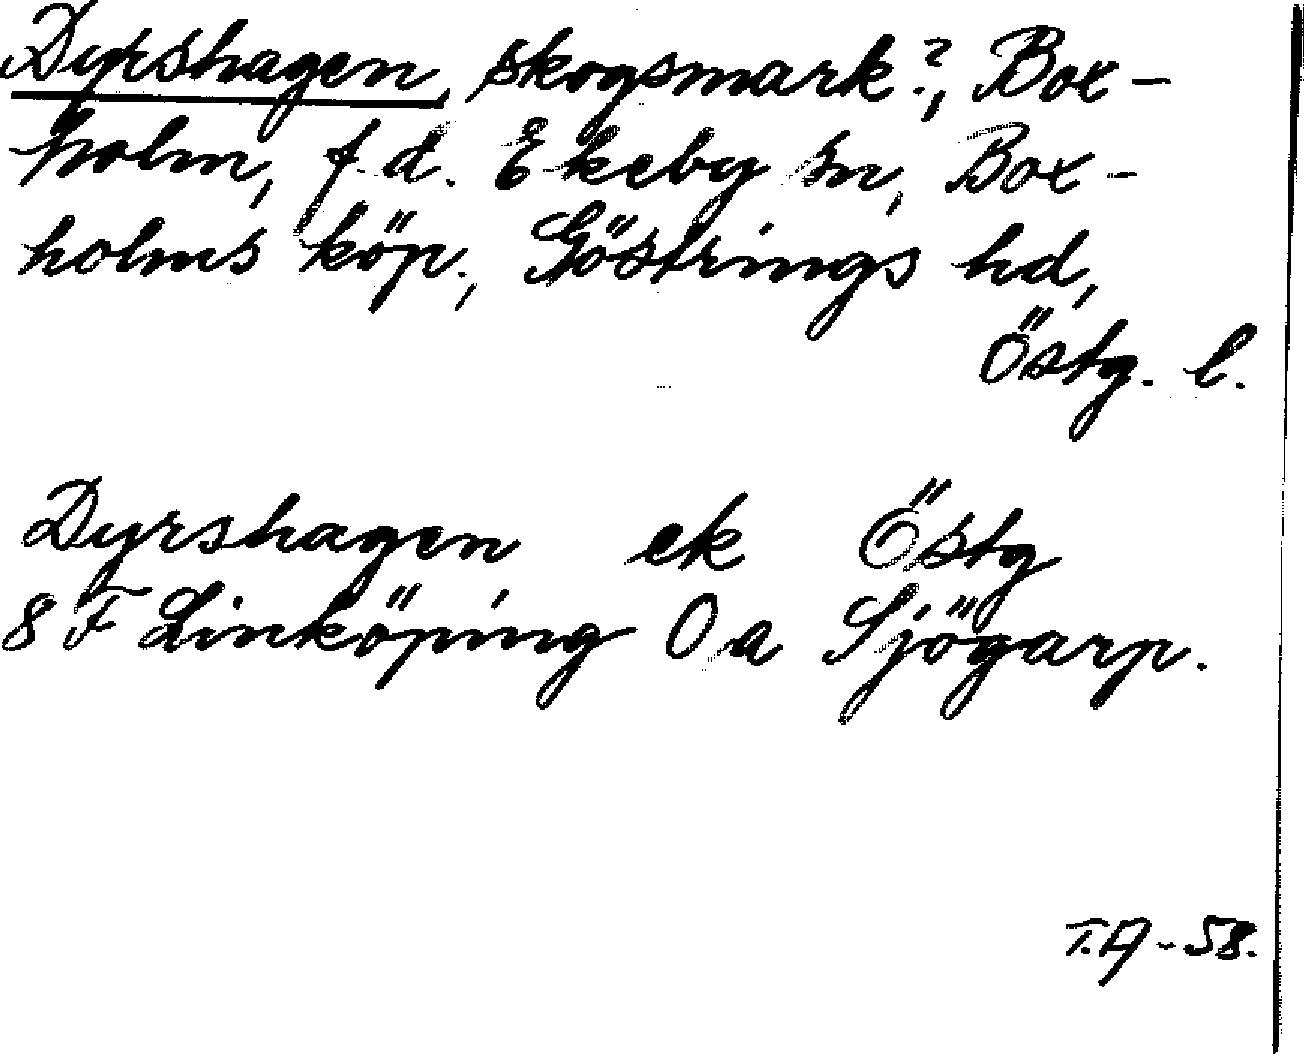 Dyrshagen, skogsmark?, Box-
holm, f.d. Ekeby sn, Box-
holms köp., Göstrings hd,
Östg. l.
Dyrshagen ek Östg
8 F Linköping 0 a Sjögarp.
T.A-58.